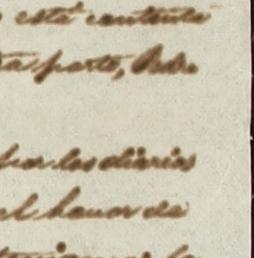 está contenta
parte, Pedro
por los diarios
el honor de